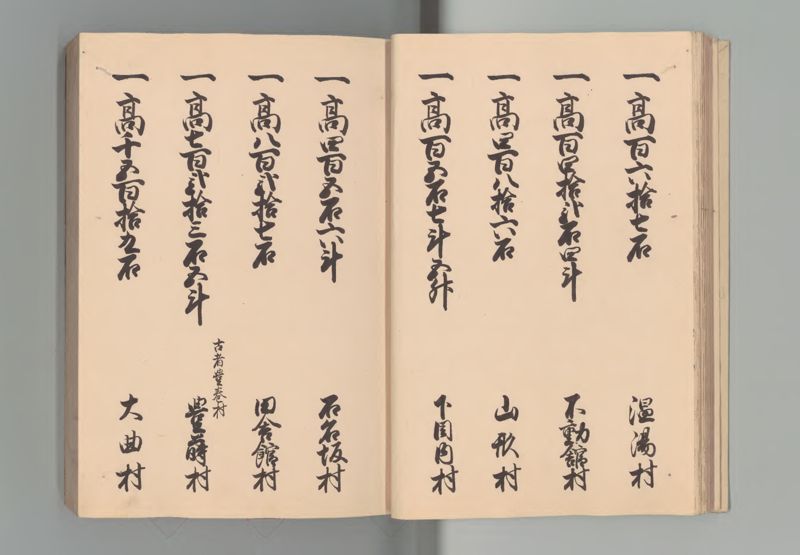 一 高百六拾七石 温湯村
一 高百四拾弐石四斗 不動舘村
一 高四百八拾六石 山形村
一 高百五石七斗五升 下目内村
一 高四百五石六斗 石名坂村
一 高八百弐拾七石 田舎舘村
古者豊巻村
一 高七百弐拾三石五斗 豊蒔村
一 高千五百拾九石 大曲村